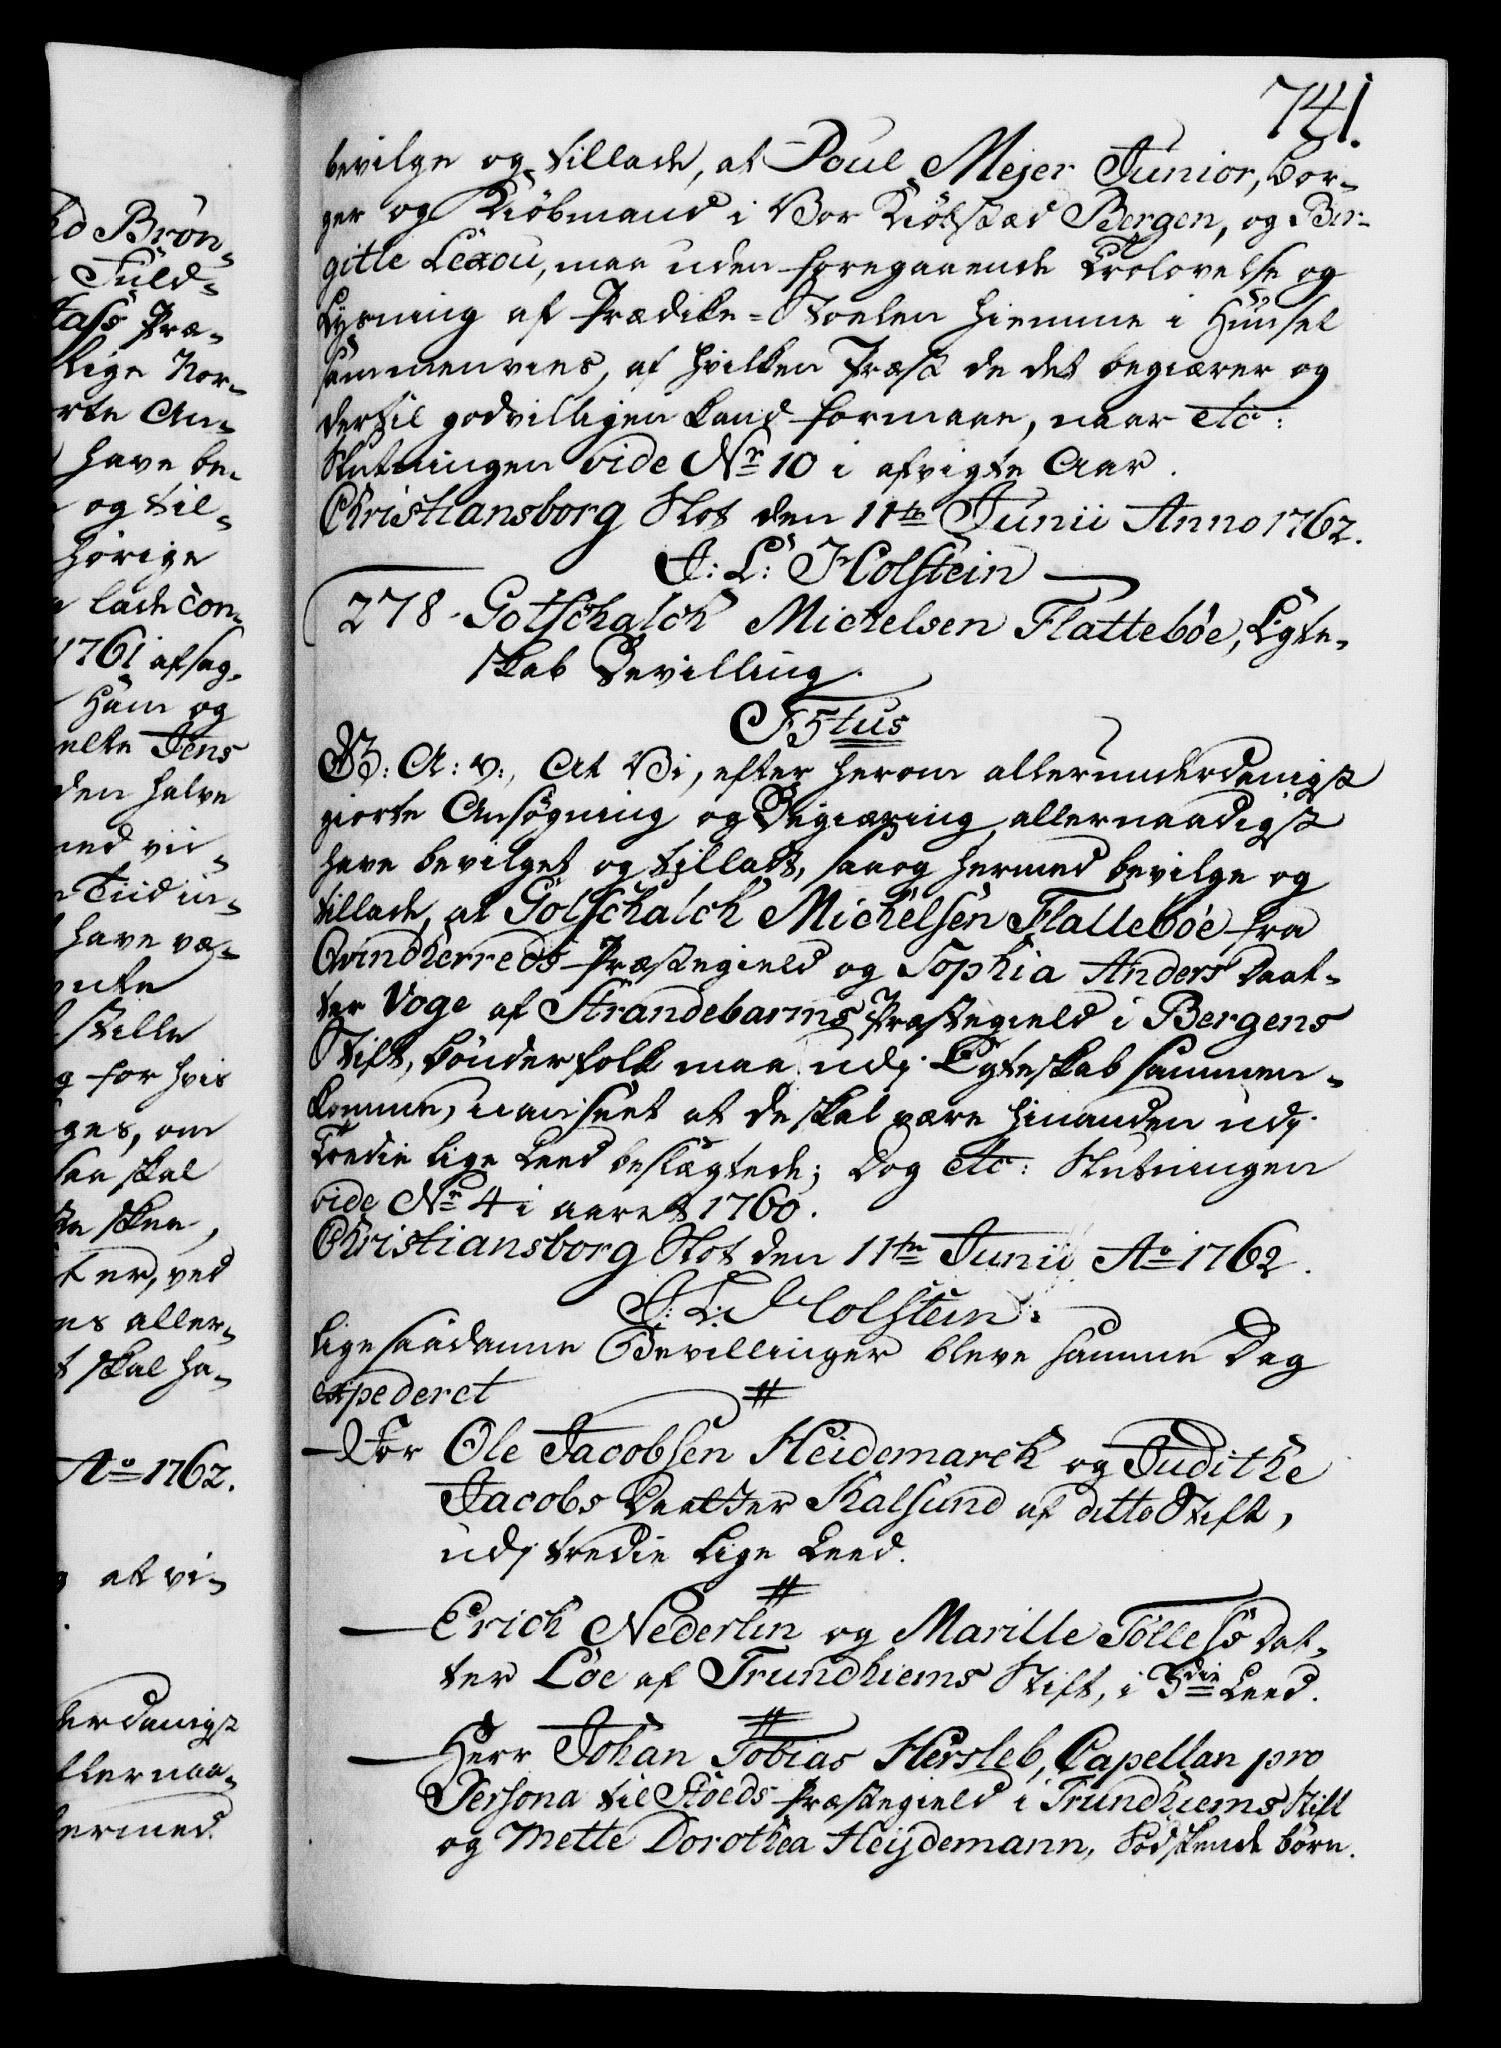 741.
bevilge og tillade, at Poul Mejer Junior, Bor-
ger og Kiöbmand i Vor Kiöbstad Bergen, og Bir-
gitte Lexou, maa uden foregaaende Trolovelse og
Lysning af Prædike-Stoelen hiemme i Huuset
sammenvies, af hvilken Præst de det begiærer og
dertil godvilligen kand formaae, naar etc:
Slutningen vide Nr 10 i afvigte Aar.
Christiansborg Slot den 11te Junii Anno 1762.
J: L: Holstein
278. Gotschalch Michelsen Flatteböe, Egte-
skab Bevilling.
F5tus
G: A: V:, At Vi, efter herom allerunderdanigst
giorte Ansøgning og Begiæring, allernaadigst
have bevilget og tilladt, saa og hermed bevilge og
tillade, at Gotschalch Michelsen Flatteböe fra
Qvindherreds Præstegield og Sophia Anders Daat-
ter Voge af Strandebarms Præstegield i Bergens
Stift, bönderfolk maa udj Egteskab sammen-
komme, uanseet at de skal være hinanden udj
Tredie lige Leed beslægtede; Dog etc: Slutningen
vide Nr 4 i aaret 1760.
Christiansborg Slot den 11te Junii Ao 1762.
J: L: Holstein.
Lige saadanne Bevillinger bleve samme Dag
expederet
#
For Ole Jacobsen Heidemarck og Judithe
Jacobs Daatter Kalsund af ditto Stift,
udj tredie lige Leed.
#
Erich Nederlin og Marille Tölless Dat-
ter Löe af Trundhiems Stift, i 3die Leed.
#
Herr Johan Tobias Hersleb, Capellan pro
Persona til Stöeds Præstegield i Trundhiems Stift
og Mette Dorothea Heijdemann, Sødskende børn.